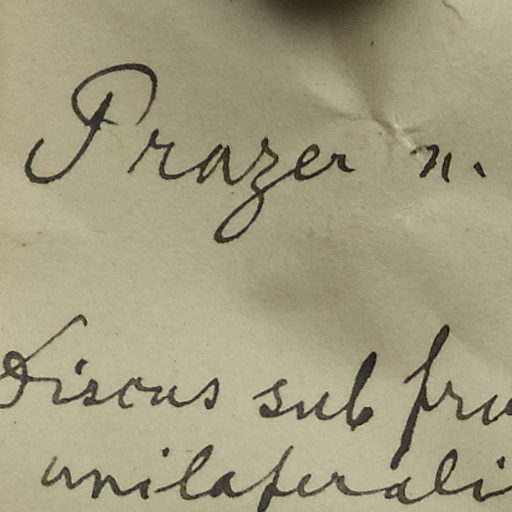 Prazer n.
Discus sub fru
unilaterali